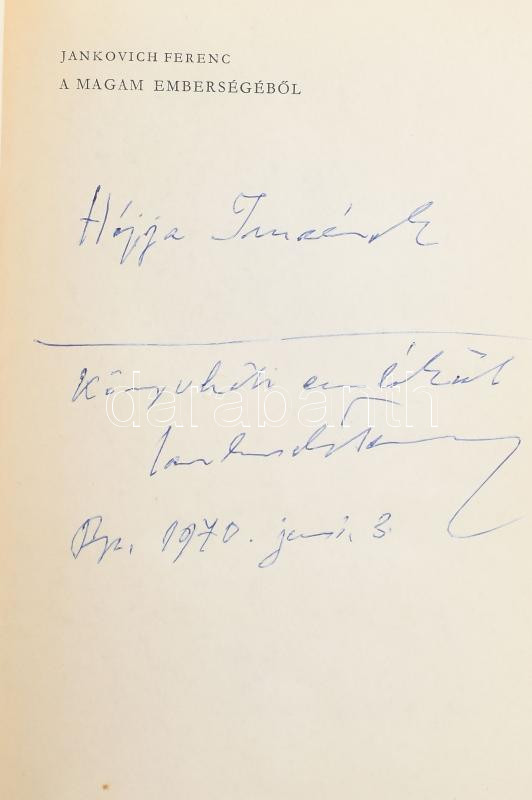 JANKOVICH FERENC
A MAGAM EMBERSÉGÉBŐL
Hájja Imrének
Könyvheti emlékül
darabanth
Jankovich Ferenc
Bp. 1970. juni. 3.